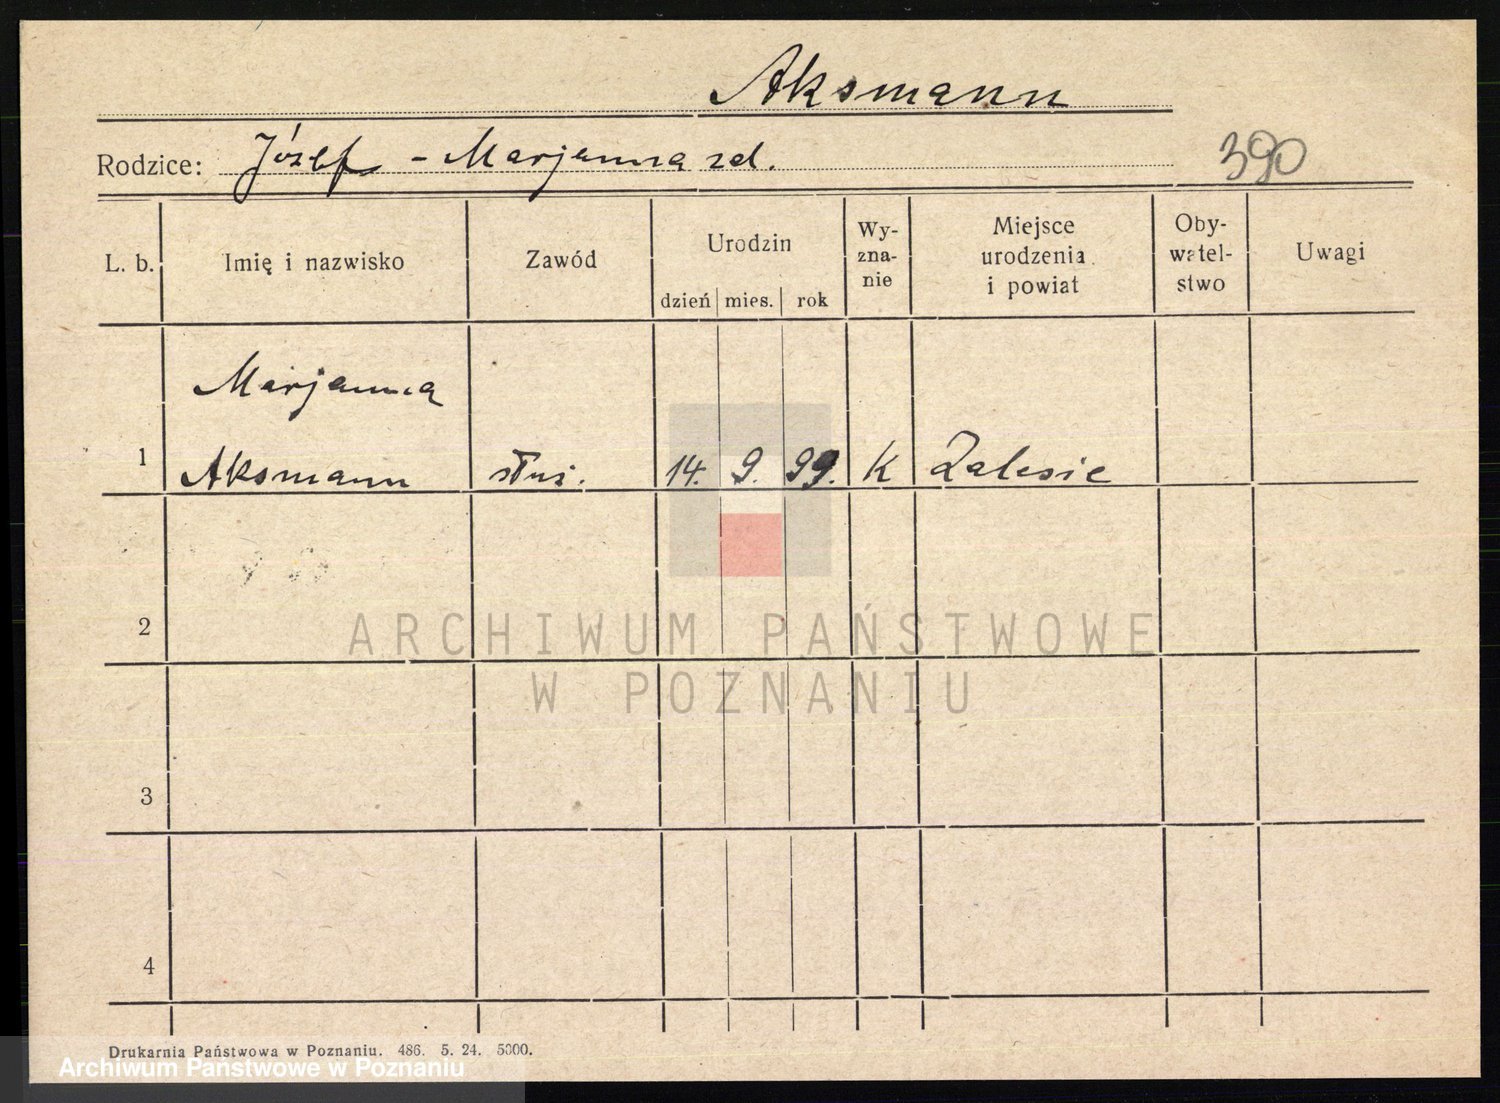 Aksmann
Rodzice: Józef - Marjanna zd.
390
L. b.
Imię i nazwisko
Zawód
Urodzin
dzień mies. rok
Wy-
zna-
nie
Miejsce
urodzenia
i powiat
Oby-
watel-
stwo
Uwagi
Marjanna
1 Aksmann służ. 14. 9. 99. K Zalesie
2
ARCHIWUM PAŃSTWOWE
W POZNANIU
3
4
Drukarnia Państwowa w Poznaniu. 486. 5. 24. 5000.
Archiwum Państwowe w Poznaniu